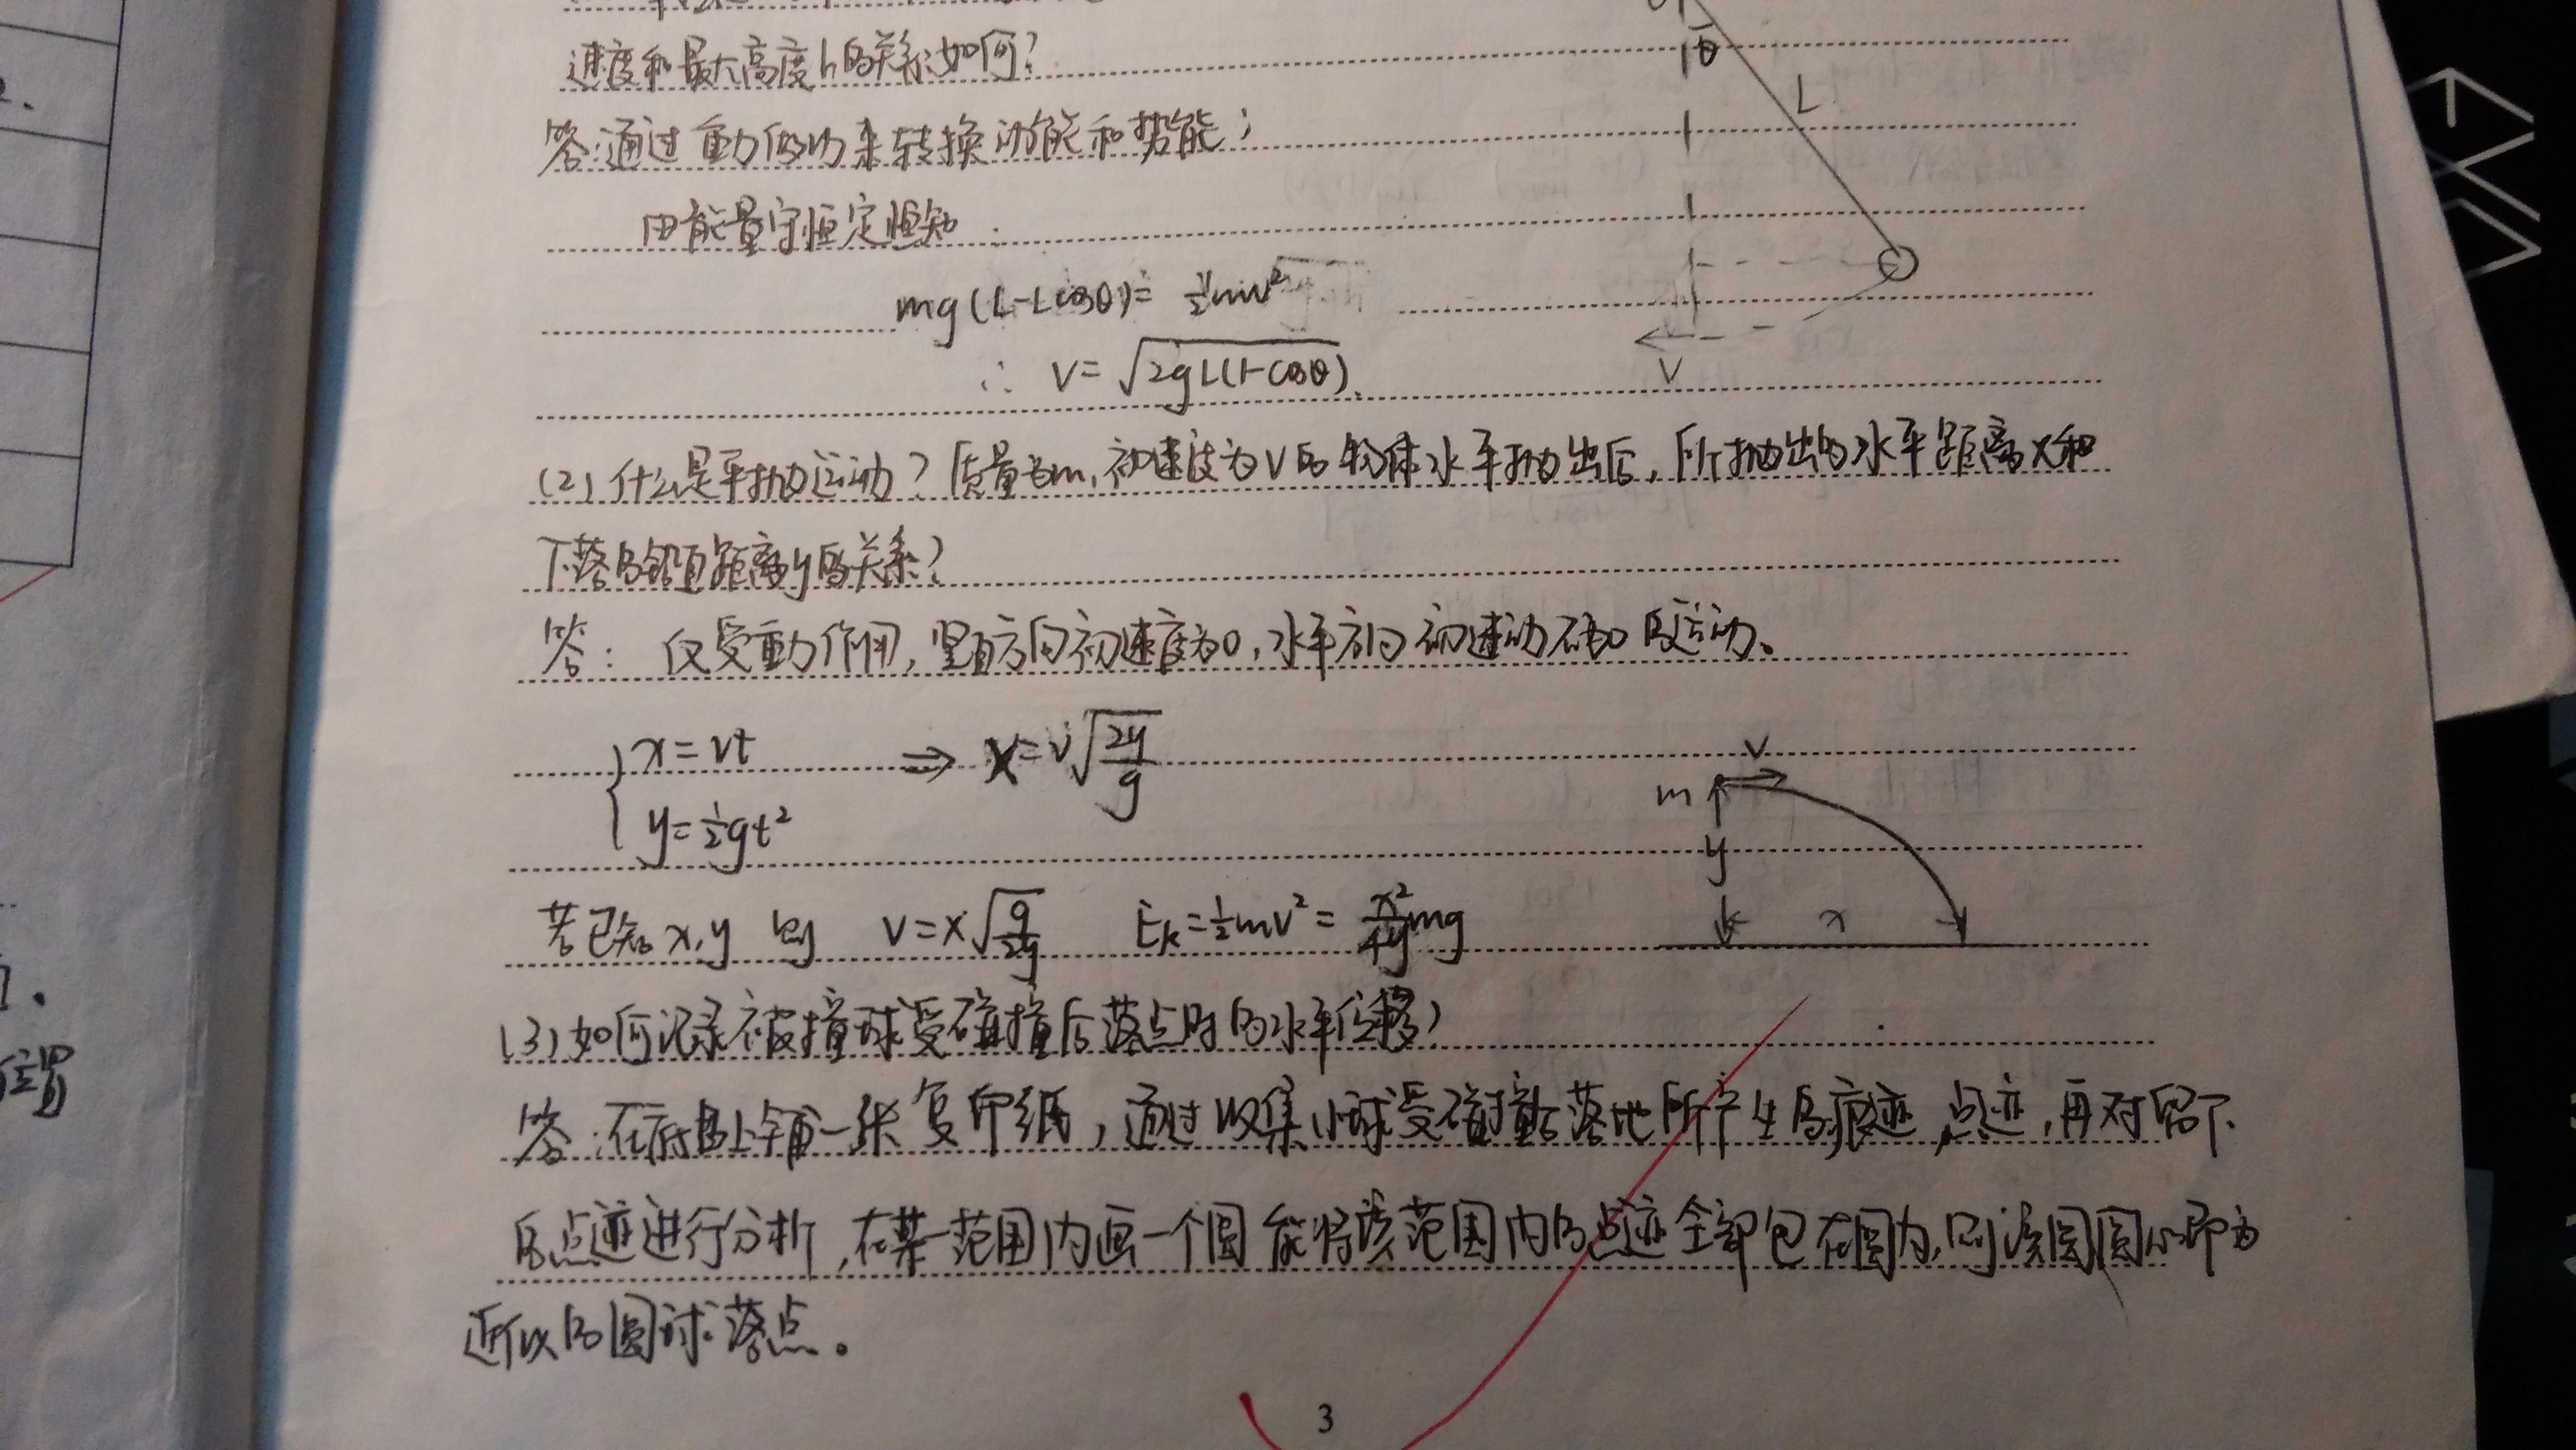 速度和最大高度h的关系如何?
θ
L
答:通过重力做功来转换动能和势能;
由能量守恒定恒知:
mg(L-Lcosθ)= ½mv²
∴ v=√2gL(1-cosθ).
V
(2) 什么是平抛运动? 质量为m,初速度为V的物体水平抛出后,所抛出的水平距离x和
下落的铅直距离y的关系?
答: 仅受重力作用,竖直方向初速度为0,水平方向初速动不为0的运动。
{ x=vt ⇒ x=v√(2y/g)
y=½gt²
v
m
y
x
若已知x,y 则 v=x√(g/2y) Ek=½mv²=x²/4y mg
(3) 如何记录被撞球受碰撞后落点时的水平位移?
答:在底板上铺一张复印纸,通过收集小球受碰撞后落地所产生的痕迹点迹,再对留下
的点迹进行分析,在某一范围内画一个圆能将该范围内的点迹全部包在圆内,则该圆圆心即为
近似的圆球落点。
3
位置